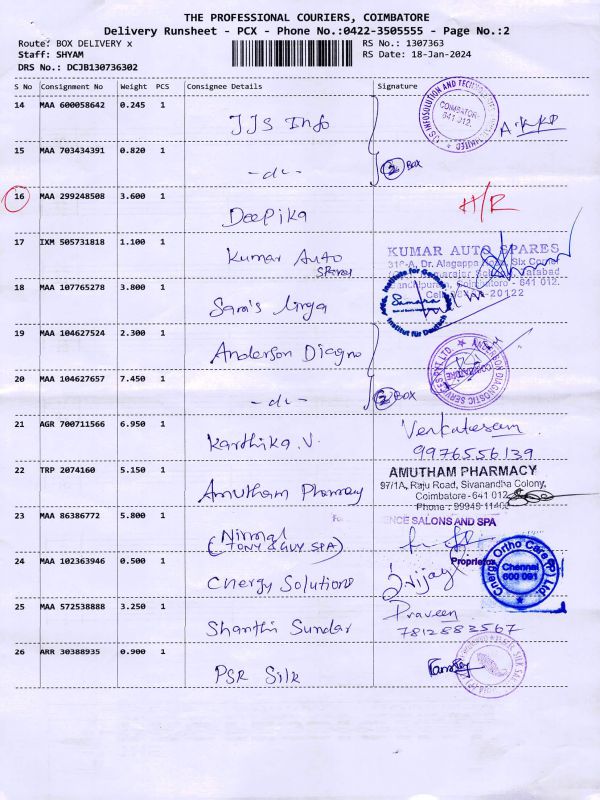 THE PROFESSIONAL COURIERS, COIMBATORE
Delivery Runsheet - PCX - Phone No.:0422-3505555 - Page No.:2
Route: BOX DELIVERY x RS No.: 1307363
Staff: SHYAM RS Date: 18-Jan-2024
DRS No.: DCJB130736302
S No Consignment No Weight PCS Consignee Details Signature
14 MAA 600058642 0.245 1 JJS Info
COIMBATORE-
641 012.
15 MAA 703434391 0.820 1 - do - 2 Box
16 MAA 299248508 3.600 1 Deepika H/R
17 IXM 505731818 1.100 1 Kumar Auto Spares
KUMAR AUTO SPARES
Coimbatore - 641 012.
18 MAA 107765278 3.800 1
Institut für Deutsch
19 MAA 104627524 2.300 1 Anderson Diagno
ANDERSON DIAGNOSTIC SERVICES PVT LTD
20 MAA 104627657 7.450 1 - do - 2 Box
21 AGR 700711566 6.950 1 Karthika.V. Venkatesan.
9976556139
22 TRP 2074160 5.150 1 Amutham Pharmacy
AMUTHAM PHARMACY
97/1A, Raju Road, Sivanandha Colony,
Coimbatore - 641 012
Phone : 99949 11400
23 MAA 86386772 5.800 1 Nirmal
(TONY & GUY SPA)
ENCE SALONS AND SPA
Proprietor
24 MAA 102363946 0.500 1 Cnergy Solutions Vijay
Cnergy Ortho Care (P) Ltd.
Chennai
600 091
25 MAA 572538888 3.250 1 Shanthi Sundar Praveen
7812883567
26 ARR 30388935 0.900 1 PSR Silk